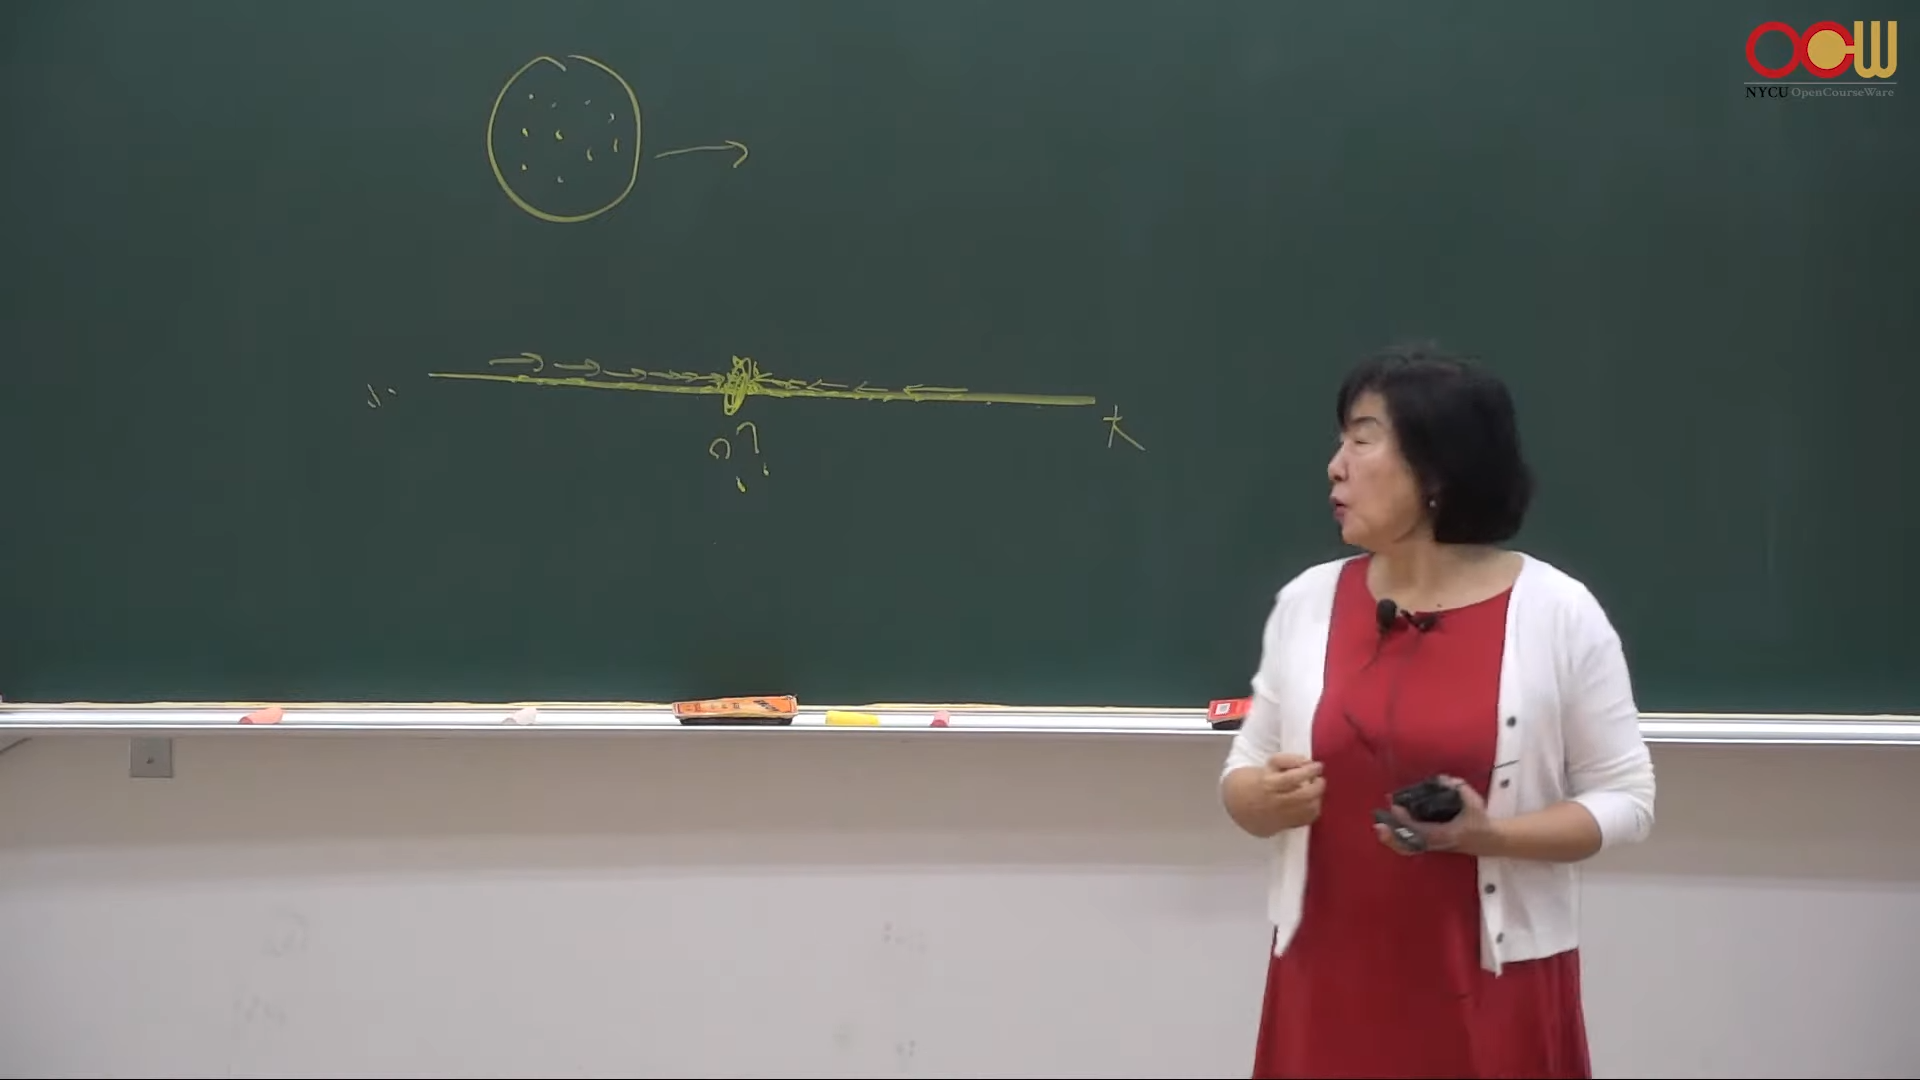 OCW
NYCU OpenCourseWare
小
大
??